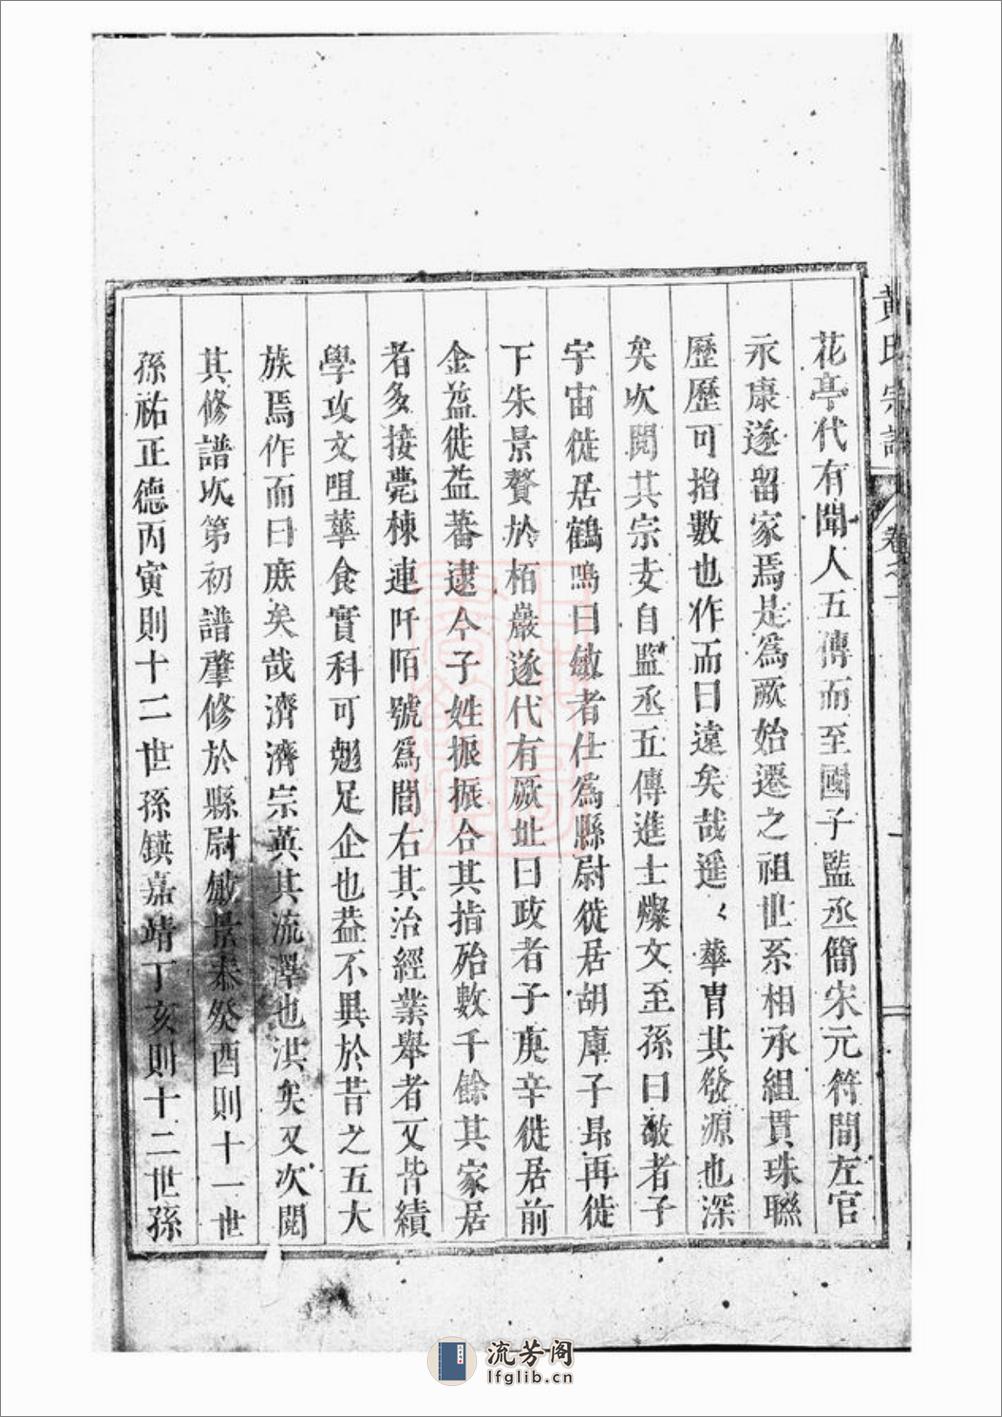 黃氏宗譜 卷之一
花亭代有聞人五傳而至國子監丞簡宋元符間左官
永康遂留家焉是爲厥始遷之祖世系相承組貫珠聯
歷歷可指數也作而曰遠矣哉遥〻華胄其發源也深
矣次閱其宗支自監丞五傳進士燦文至孫曰敵者子
宇宙徙居鶴鳴曰敏者仕爲縣尉徙居胡庫子昻再徙
下朱景贅於柏巖遂代有厥址曰政者子庚辛徙居前
金益徙益蕃逮今子姓振振合其指殆數千餘其家居
者多接甍棟連阡陌號爲閭右其治經業舉者又皆績
學攻文咀華食實科可翹足企也葢不異於昔之五大
族焉作而曰庶矣哉濟濟宗英其流澤也洪矣又次閱
其修譜次第初譜肇修於縣尉敏景泰癸酉則十一世
孫祐正德丙寅則十二世孫鍈嘉靖丁亥則十二世孫
流芳阁
lfglib.cn